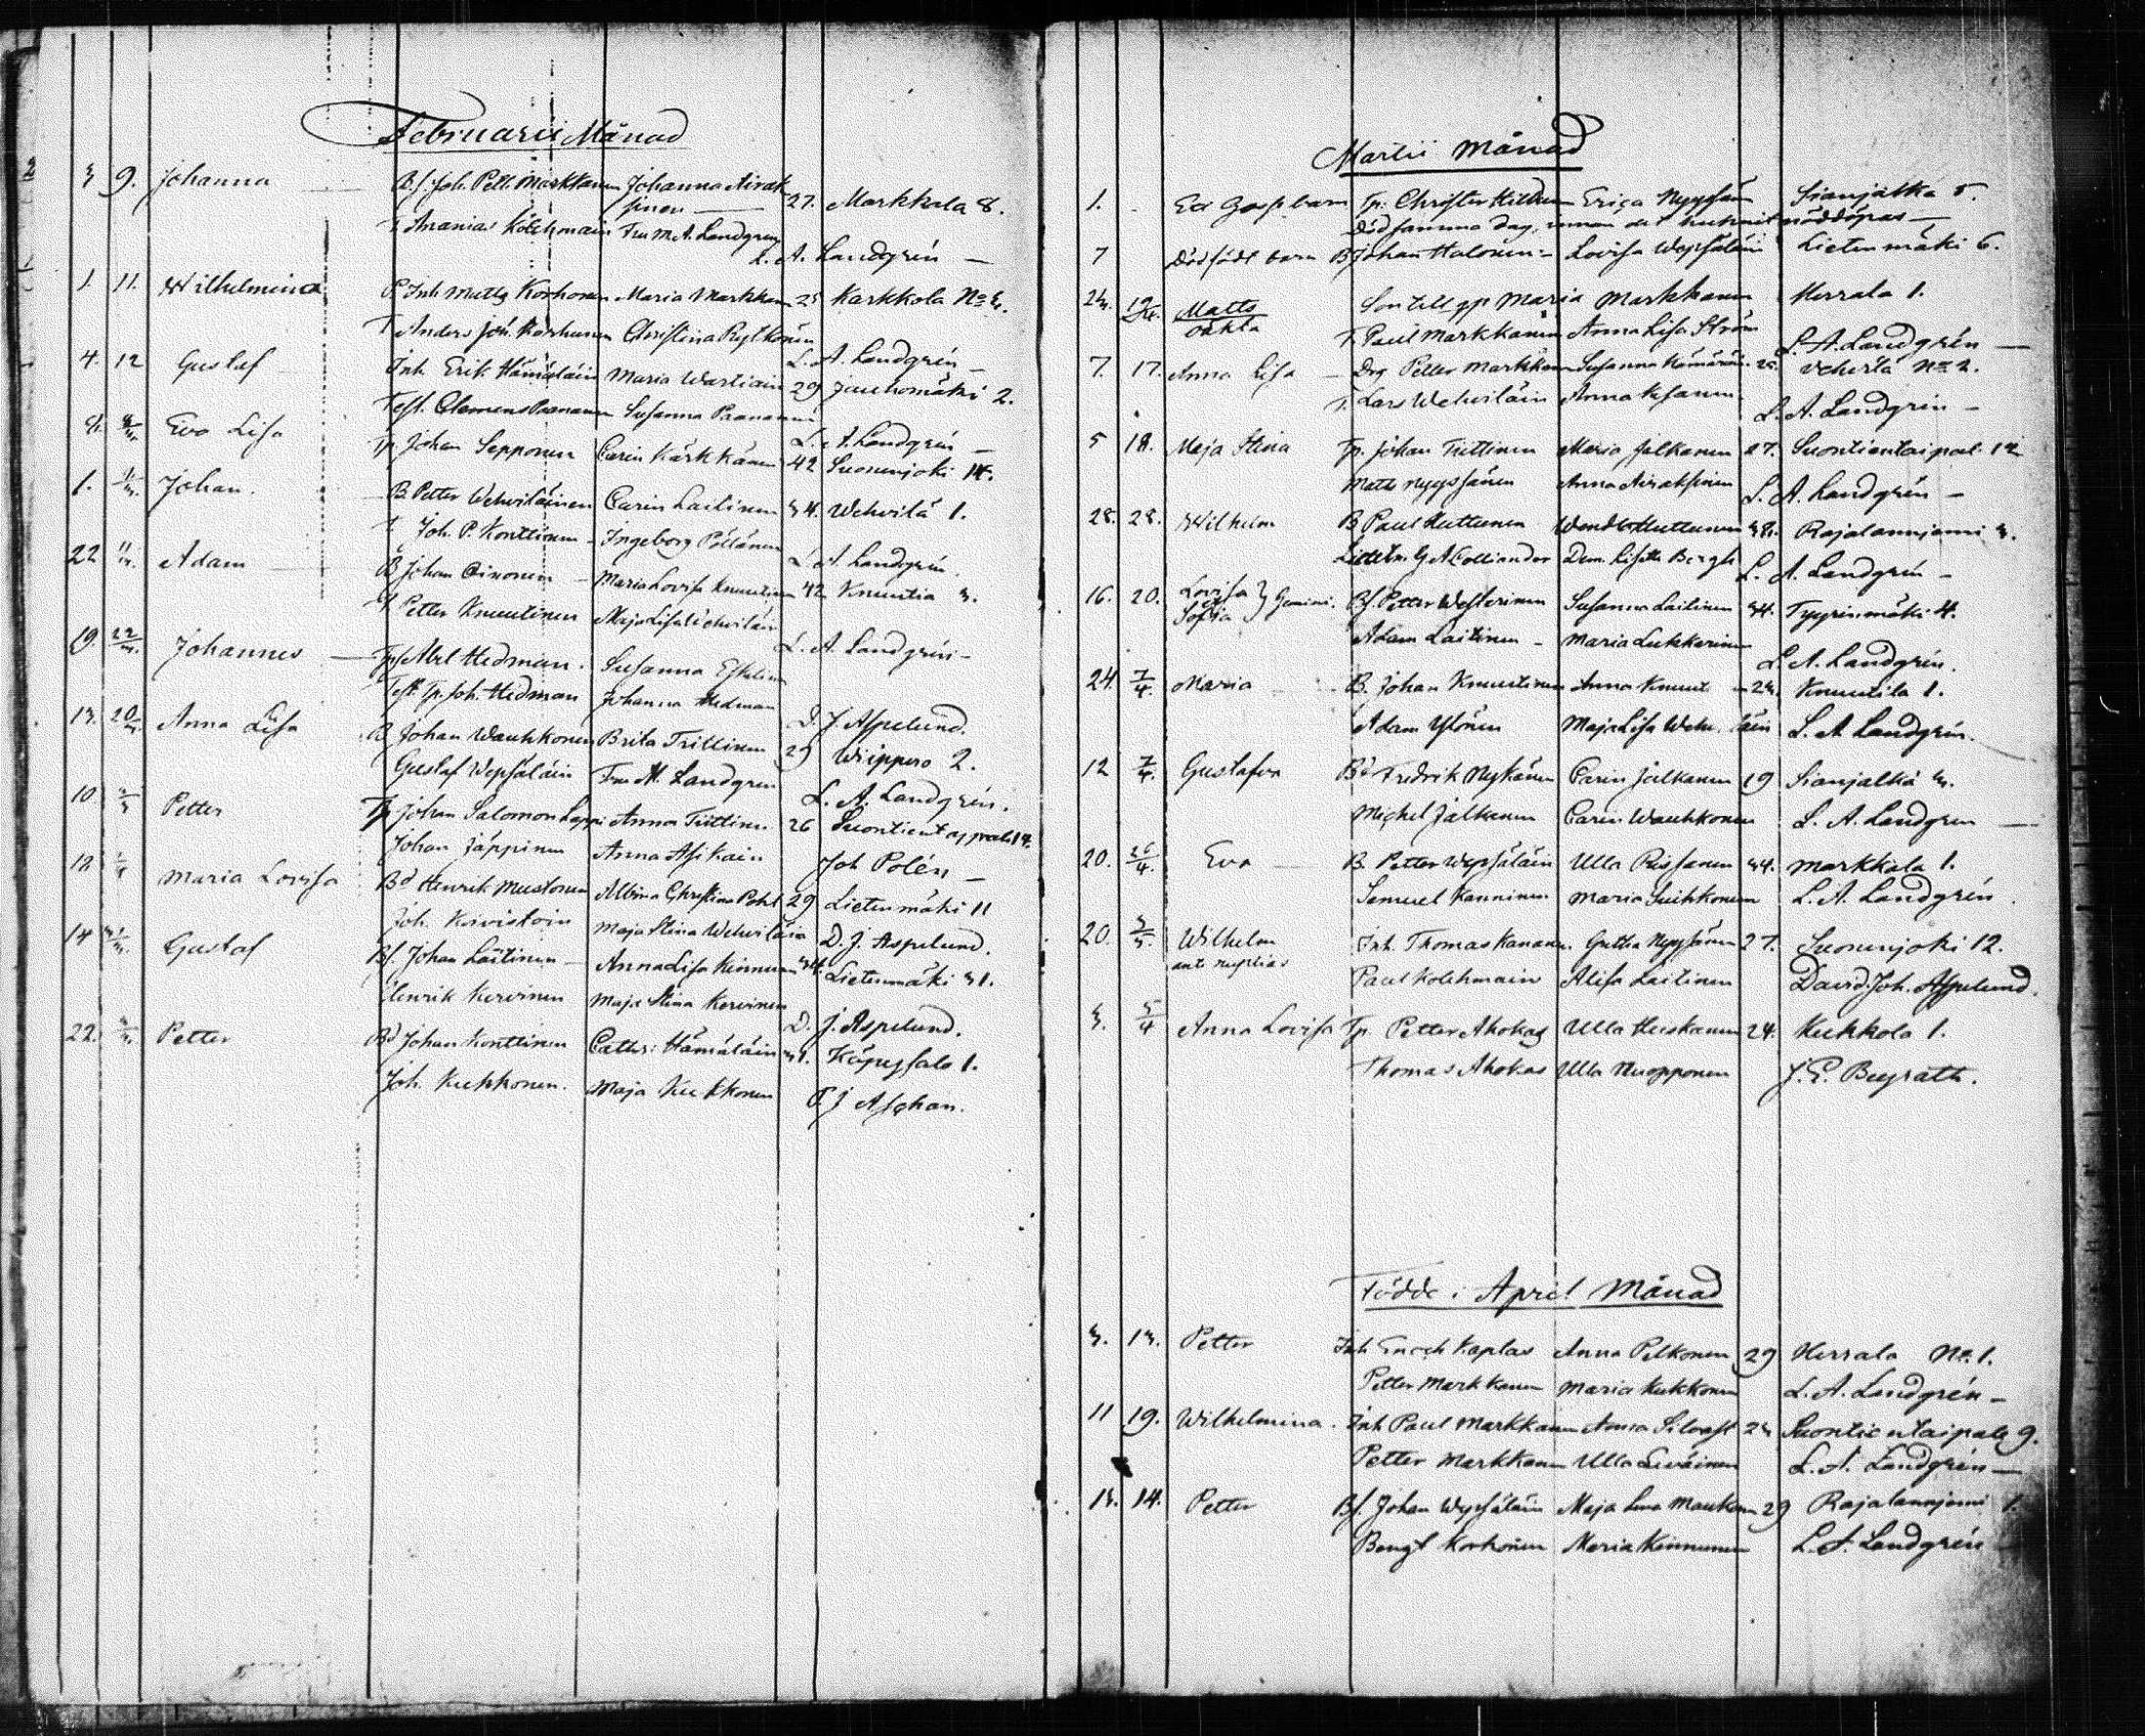 Februarii Månad
3 9. Johanna Bf. Joh. Pett. Markkanen Johanna Airak 27. Markkala 8.
sinen
T. Ananias Kolehmain Fru M. A. Landgren
L. A. Landgrén
1. 11. Wilhelmina Inh Matts Korhonen Maria Markkan 25 Karkkola No 3.
T Anders Joh. Korhonen Christina Rytkönen
L. A. Landgrén
4. 12 Gustaf Inh. Erik Hämäläin Maria Wartiain 29 Jauhomäki 2.
Test. Clemens Paananen Susanna Paananen
L. A. Landgrén
Eva Lisa Tp Johan Sepponen Carin Kärkkänen 42 Suonenjoki 14.
1. Johan. B Petter Wehviläinen Carin Laitinen 34. Wehvilä 1.
T Joh. P. Konttinen Ingeborg Pöllänen
L. A. Landgrén.
22 Adam B Johan Oinonen Maria Lovisa Knuutinen 42 Knuutila 3.
T Petter Knuutinen Maja Lisa Wehviläin
L. A. Landgrén
19. 22/3. Johannes Tp Abel Hedman. Susanna Eskelin
Test. Tp. Joh. Hedman Johanna Hedman
D. J. Aspelund.
13. 20/3. Anna Lisa B Johan Wauhkonen Brita Tiittinen 29 Wiippero 2.
Gustaf Wepsäläin Fru M. Landgren
L. A. Landgrén.
10 Petter Tp Johan Salomon Lappi Anna Tiittinen 26 Suontientaipale 14.
Johan Jäppinen Anna Asikain
Joh Polén
12. Maria Lovisa Bd Henrik Mustonen Albina Christina Pohl 29 Lietenmäki 11
Joh. Kovistoin Maja Stina Wehviläin
D. J. Aspelund.
14 Gustaf Bf. Johan Laitinen Anna Lisa Kinnunen 34. Lietenmäki 31.
Henrik Kervinen Maja Stina Kervinen
D. J. Aspelund.
22. Petter Bd Johan Konttinen Cathr: Hämäläin 31. Käpysalo 1.
Joh. Kukkonen. Maja Kukkonen
Martii Månad
1. Ett Gossebarn Tp. Christer Hedman Erica Nyyssön Sianjalka 5.
Död samma dag, innan det hunnit nöddöpas
7 Dödfödt barn B Johan Halonen Lovisa Wepsäläin Lietenmäki 6.
24. Matts Son till pp Maria Markkanen Herrala 1.
oäkta T. Paul Markkanen Anna Lisa Ström
L. A. Landgrén
7. 17. Anna Lisa Drg Petter Markkanen Susanna Hämäräin. 25. Vehvilä No 2.
T. Lars Wehviläin Anna Kosanen
L. A. Landgrén
5 18. Maja Stina Tp. Johan Tiittinen Maria Jalkanen 27. Suontientaipal. 12
Matts Nyyssönen Anna Airaksinen
L. A. Landgrén
28. 28. Wilhelm B Paul Huttunen Wendla Huttunen 38. Rajalanniemi 3.
Lieutn. G A Colliander Dem. Lisette Bergh
L. A. Landgrén
16. 20. Lovisa } Gemini. Bf. Petter Westerinen Susanna Laitinen 34. Tyyrinmäki 4.
Sofia
Adam Laitinen Maria Lukkarinen
L. A. Landgrén.
24. 7/4. Maria B. Johan Knuutinen Anna Knuut 23. Knuutila 1.
Adam Ylönen Maja Lisa Wehviläin L. A. Landgrén.
12 7/4. Gustafva Bd Fredrik Nykänen Carin Jalkanen 19 Sianjalka 3.
Michel Jalkanen Carin Wauhkonen L. A. Landgren
20. 26/4. Eva B. Petter Wepsäläin Ulla Rissanen 34. Markkala 1.
Samuel Kanninen Maria Suihkonen L. A. Landgrén
20. 3/5. Wilhelm Inh. Thomas Kananen. Gretha Nyyssönen 27. Suonenjoki 12.
ante nuptias Paul Kolehmain Alisa Laitinen David Joh. Aspelund.
3. 5/4 Anna Lovisa Tp. Petter Ahokas Ulla Heiskanen 24. Kukkola 1.
Thomas Ahokas Ulla Nuopponen
Födde i April Månad
3. 13. Petter Inh Enoch Kaplas Anna Pelkonen 29 Herrala No 1.
Petter Markkanen Maria Kukkonen L. A. Landgrén
11 19. Wilhelmina. Inh Paul Markkanen Anna Silvast 23 Suontientaipale 9.
Petter Markkanen Ulla Leväinen L. A. Landgrén
13. 14. Petter Bf. Johan Wepsäläin Maja Lena Maukonen 29 Rajalanniemi 1.
Bengt Korhonen Maria Kinnunen L. A. Landgrén